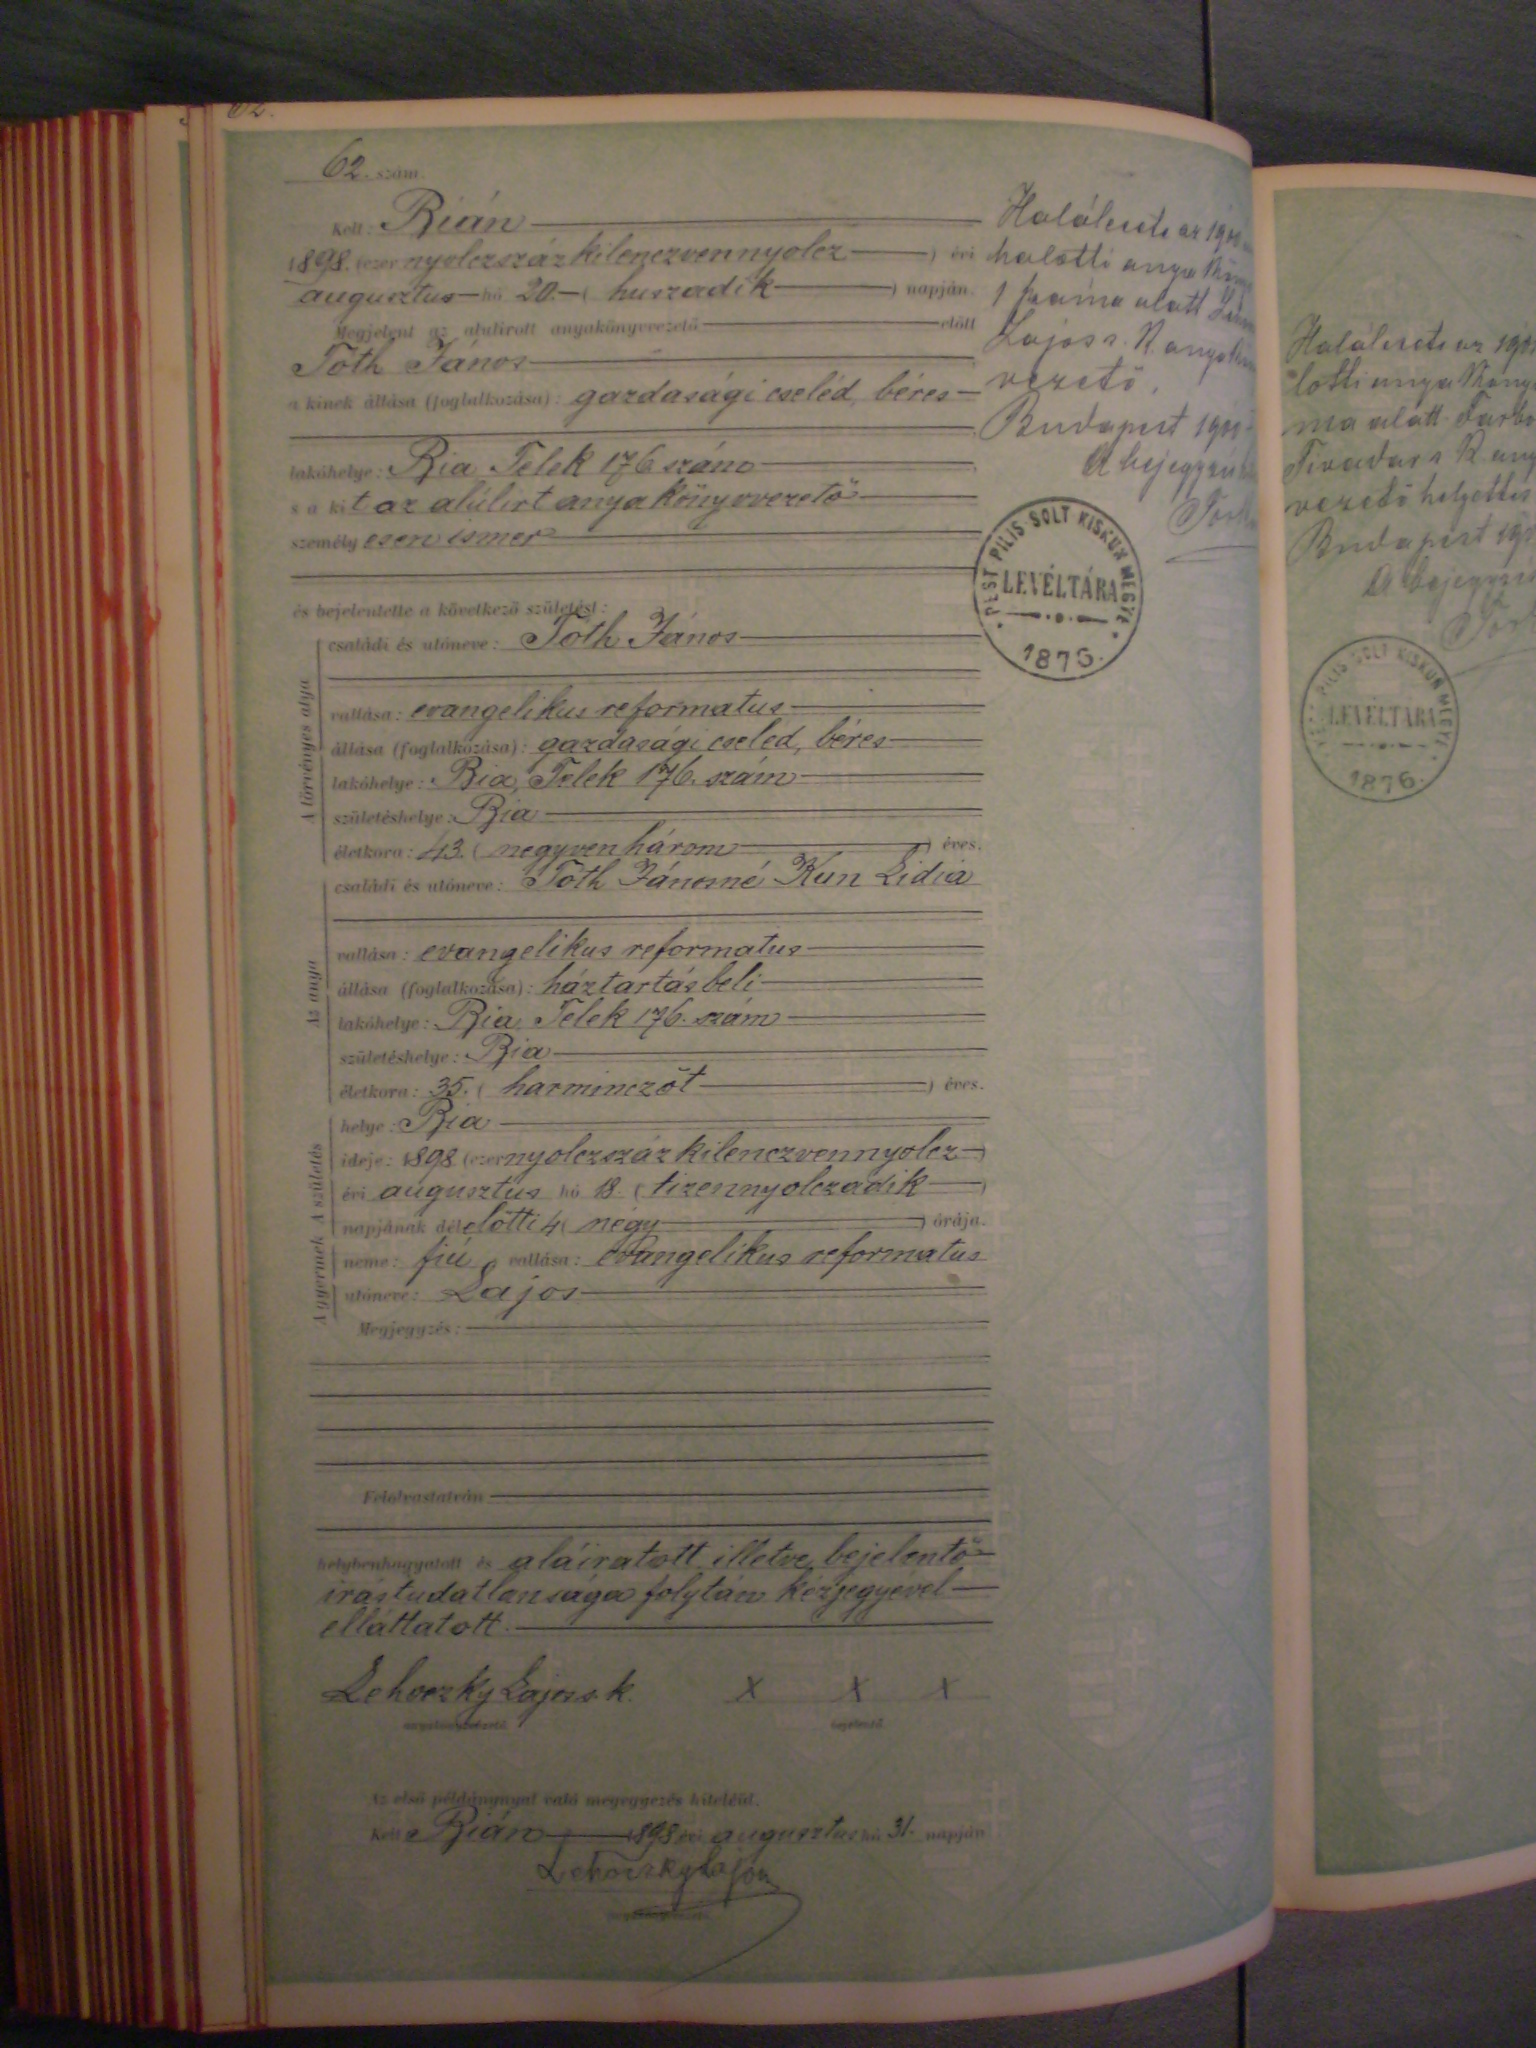 62.
62. szám.
Kelt: Bián
1898. (ezer nyolczszázkilenczvennyolcz) évi
augusztus hó 20. (huszadik) napján.
Megjelent az alulirott anyakönyvvezető előtt
Tóth János
a kinek állása (foglalkozása): gazdasági cseléd, béres
lakóhelye: Bia Telek 176 szám
s a kit az alúlirt anyakönyvvezető
személyesen ismer
és bejelentette a következő születést:
A törvényes atya
családi és utóneve: Tóth János
vallása: evangelikus reformatus
állása (foglalkozása): gazdasági cseléd, béres
lakóhelye: Bia, Telek 176. szám
születéshelye: Bia
életkora: 43. (negyvenhárom) éves.
Az anya
családi és utóneve: Tóth Jánosné Kun Lidia
vallása: evangelikus reformatus
állása (foglalkozása): háztartásbeli
lakóhelye: Bia Telek 176. szám
születéshelye: Bia
életkora: 35. (harminczöt) éves.
A gyermek A születés
helye: Bia
ideje: 1898 (ezer nyolczszázkilenczvennyolcz)
évi augusztus hó 18. (tizennyolczadik)
napjának délelőtti 4 (négy) órája.
neme: fiú vallása: evangelikus reformatus
utóneve: Lajos
Megjegyzés:
Felolvastatván
helybenhagyatott és aláiratott illetve bejelentő
irástudatlansága folytán kézjegyével
elláttatott.
Lehoczky Lajos s. k. X X X
anyakönyvvezető bejelentő
Az első példánynyal való megegyezés hiteléül.
Kelt Bián 1898 évi augusztus hó 31. napján
Lehoczky Lajos
anyakönyvvezető
Haláleste az
halotti anya
1 száma alatt
Lajos s. k.
vezető.
Budapest
A bejegyzés
PEST PILIS SOLT KISKUN MEGYE
LEVÉLTÁRA
1876.
Haláleste az
lotti anya
ma alatt
Tivadar s k
vezető helyettes
Budapest
A bejegyzés
PILIS SOLT KISKUN MEGYE
LEVÉLTÁRA
1876.